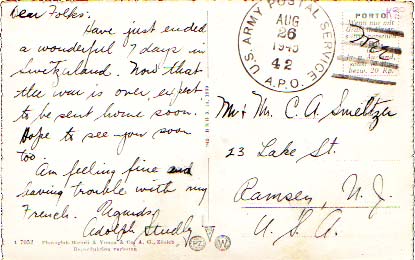 Dear Folks:
Have just ended
a wonderful 7 days in
Switzerland. Now that
the war is over, expect
to be sent home soon.
Hope to see you soon
too.
Am feeling fine and
having trouble with my
French. Regards,
Adolph Studly
U.S. ARMY POSTAL SERVICE
AUG
26
1945
42
A.P.O.
PORTO
Mr & Mr. C. A. Smeltzer
23 Lake St.
Ramsey, N. J.
U. S. A